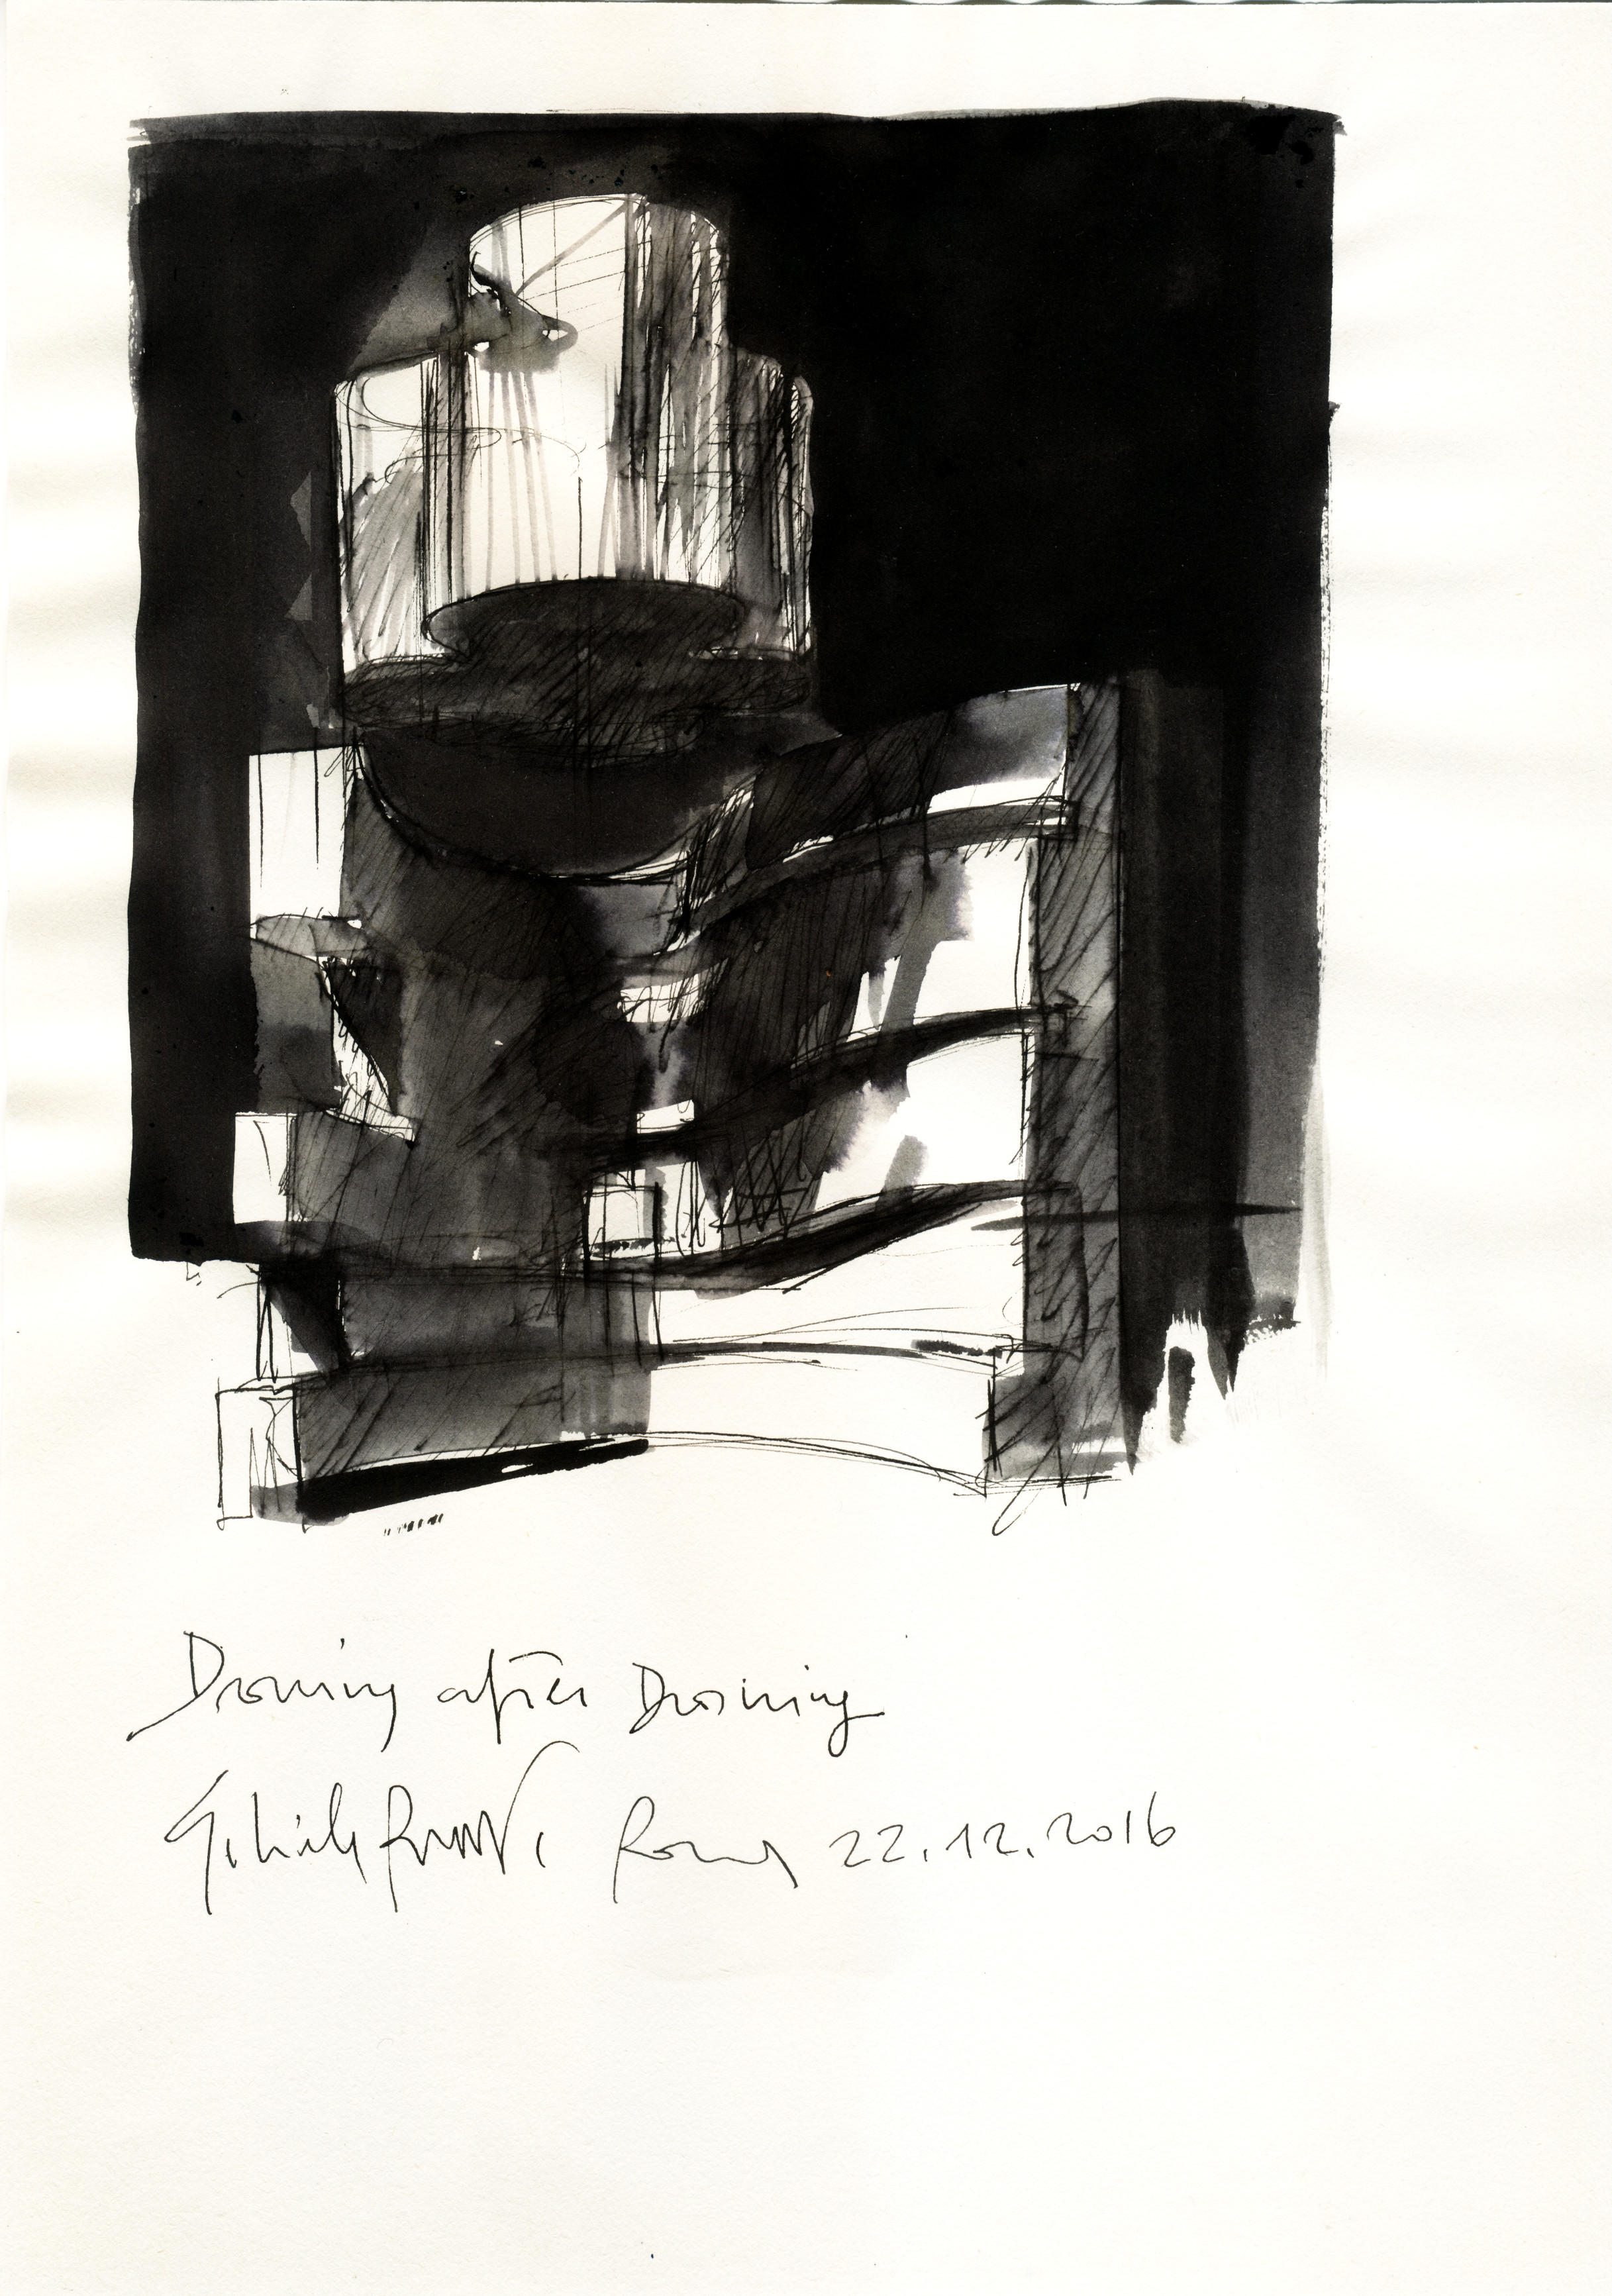 Drawing after Drawing
Roma 22.12.2016